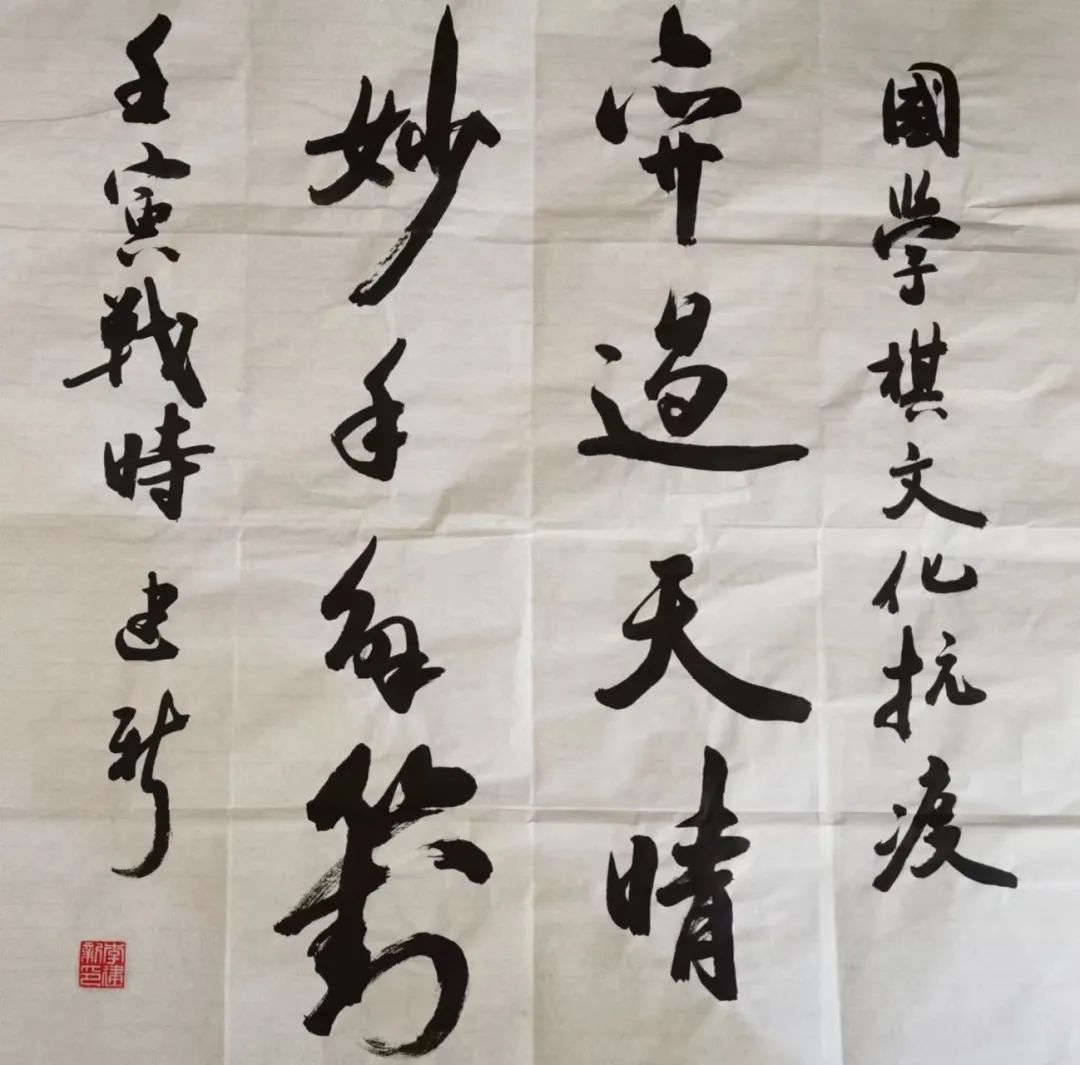 國學棋文化抗疫
弈過天晴
妙手解封
壬寅戰時 建新
李建新印